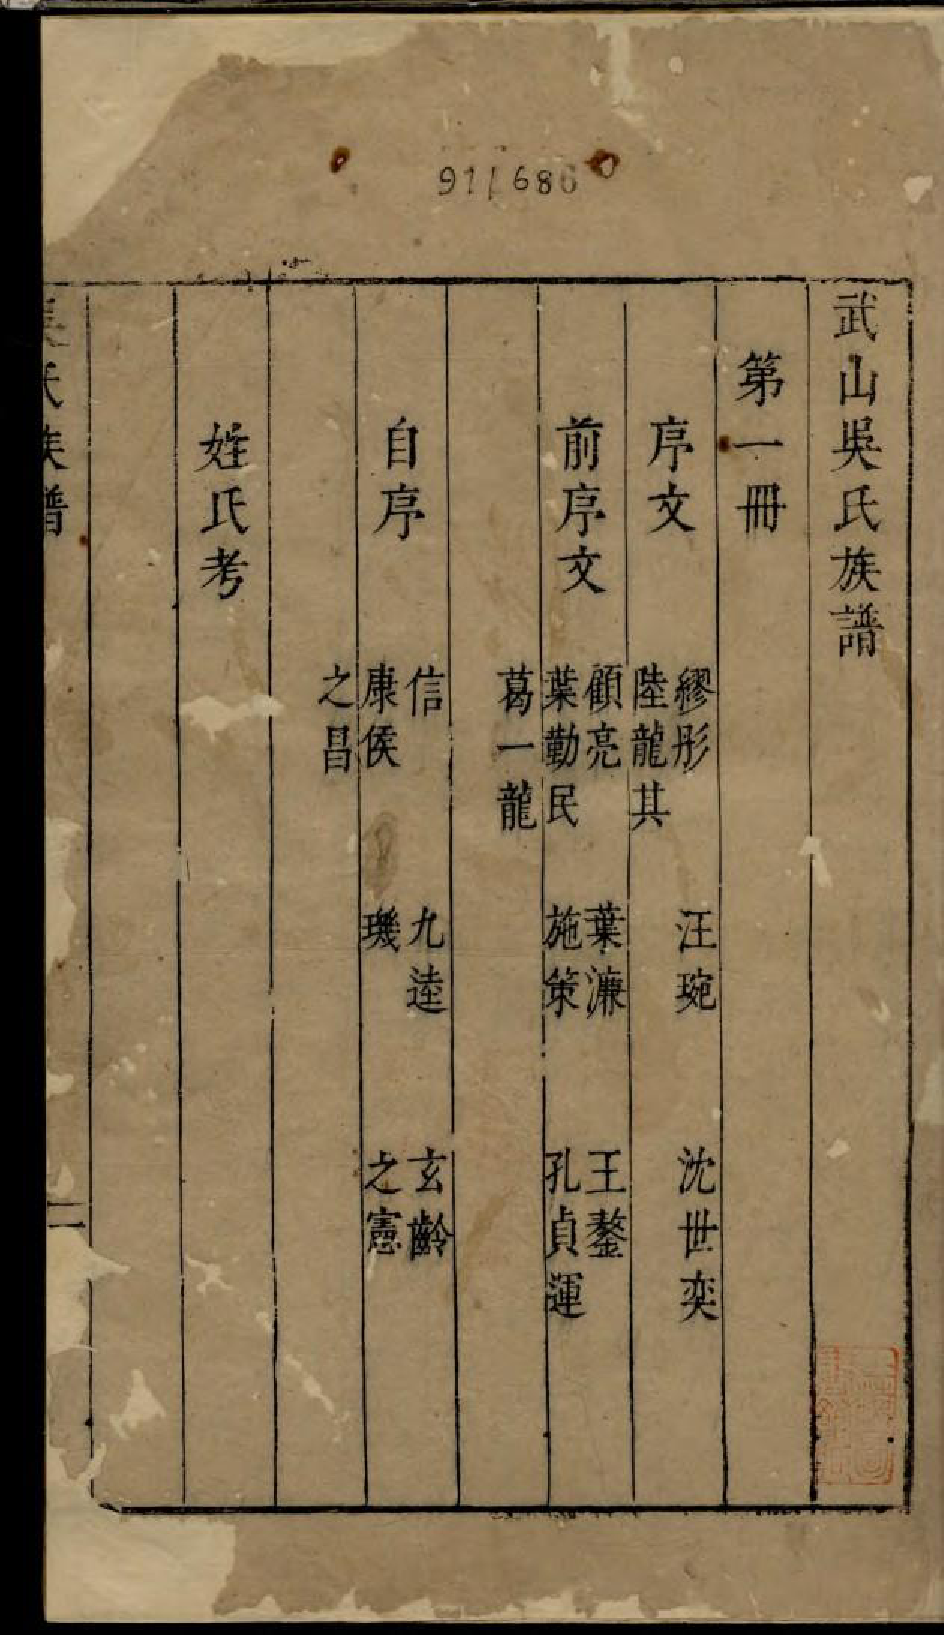 911686
武山吳氏族譜
第一冊
序文
繆彤　汪琬　沈世奕
陸龍其
前序文
顧亮　葉濂　王鏊
葉勤民　施策　孔貞運
葛一龍
自序
信　九逵　玄齡
康侯　璣　之憲
之昌
姓氏考
吳氏族譜
二